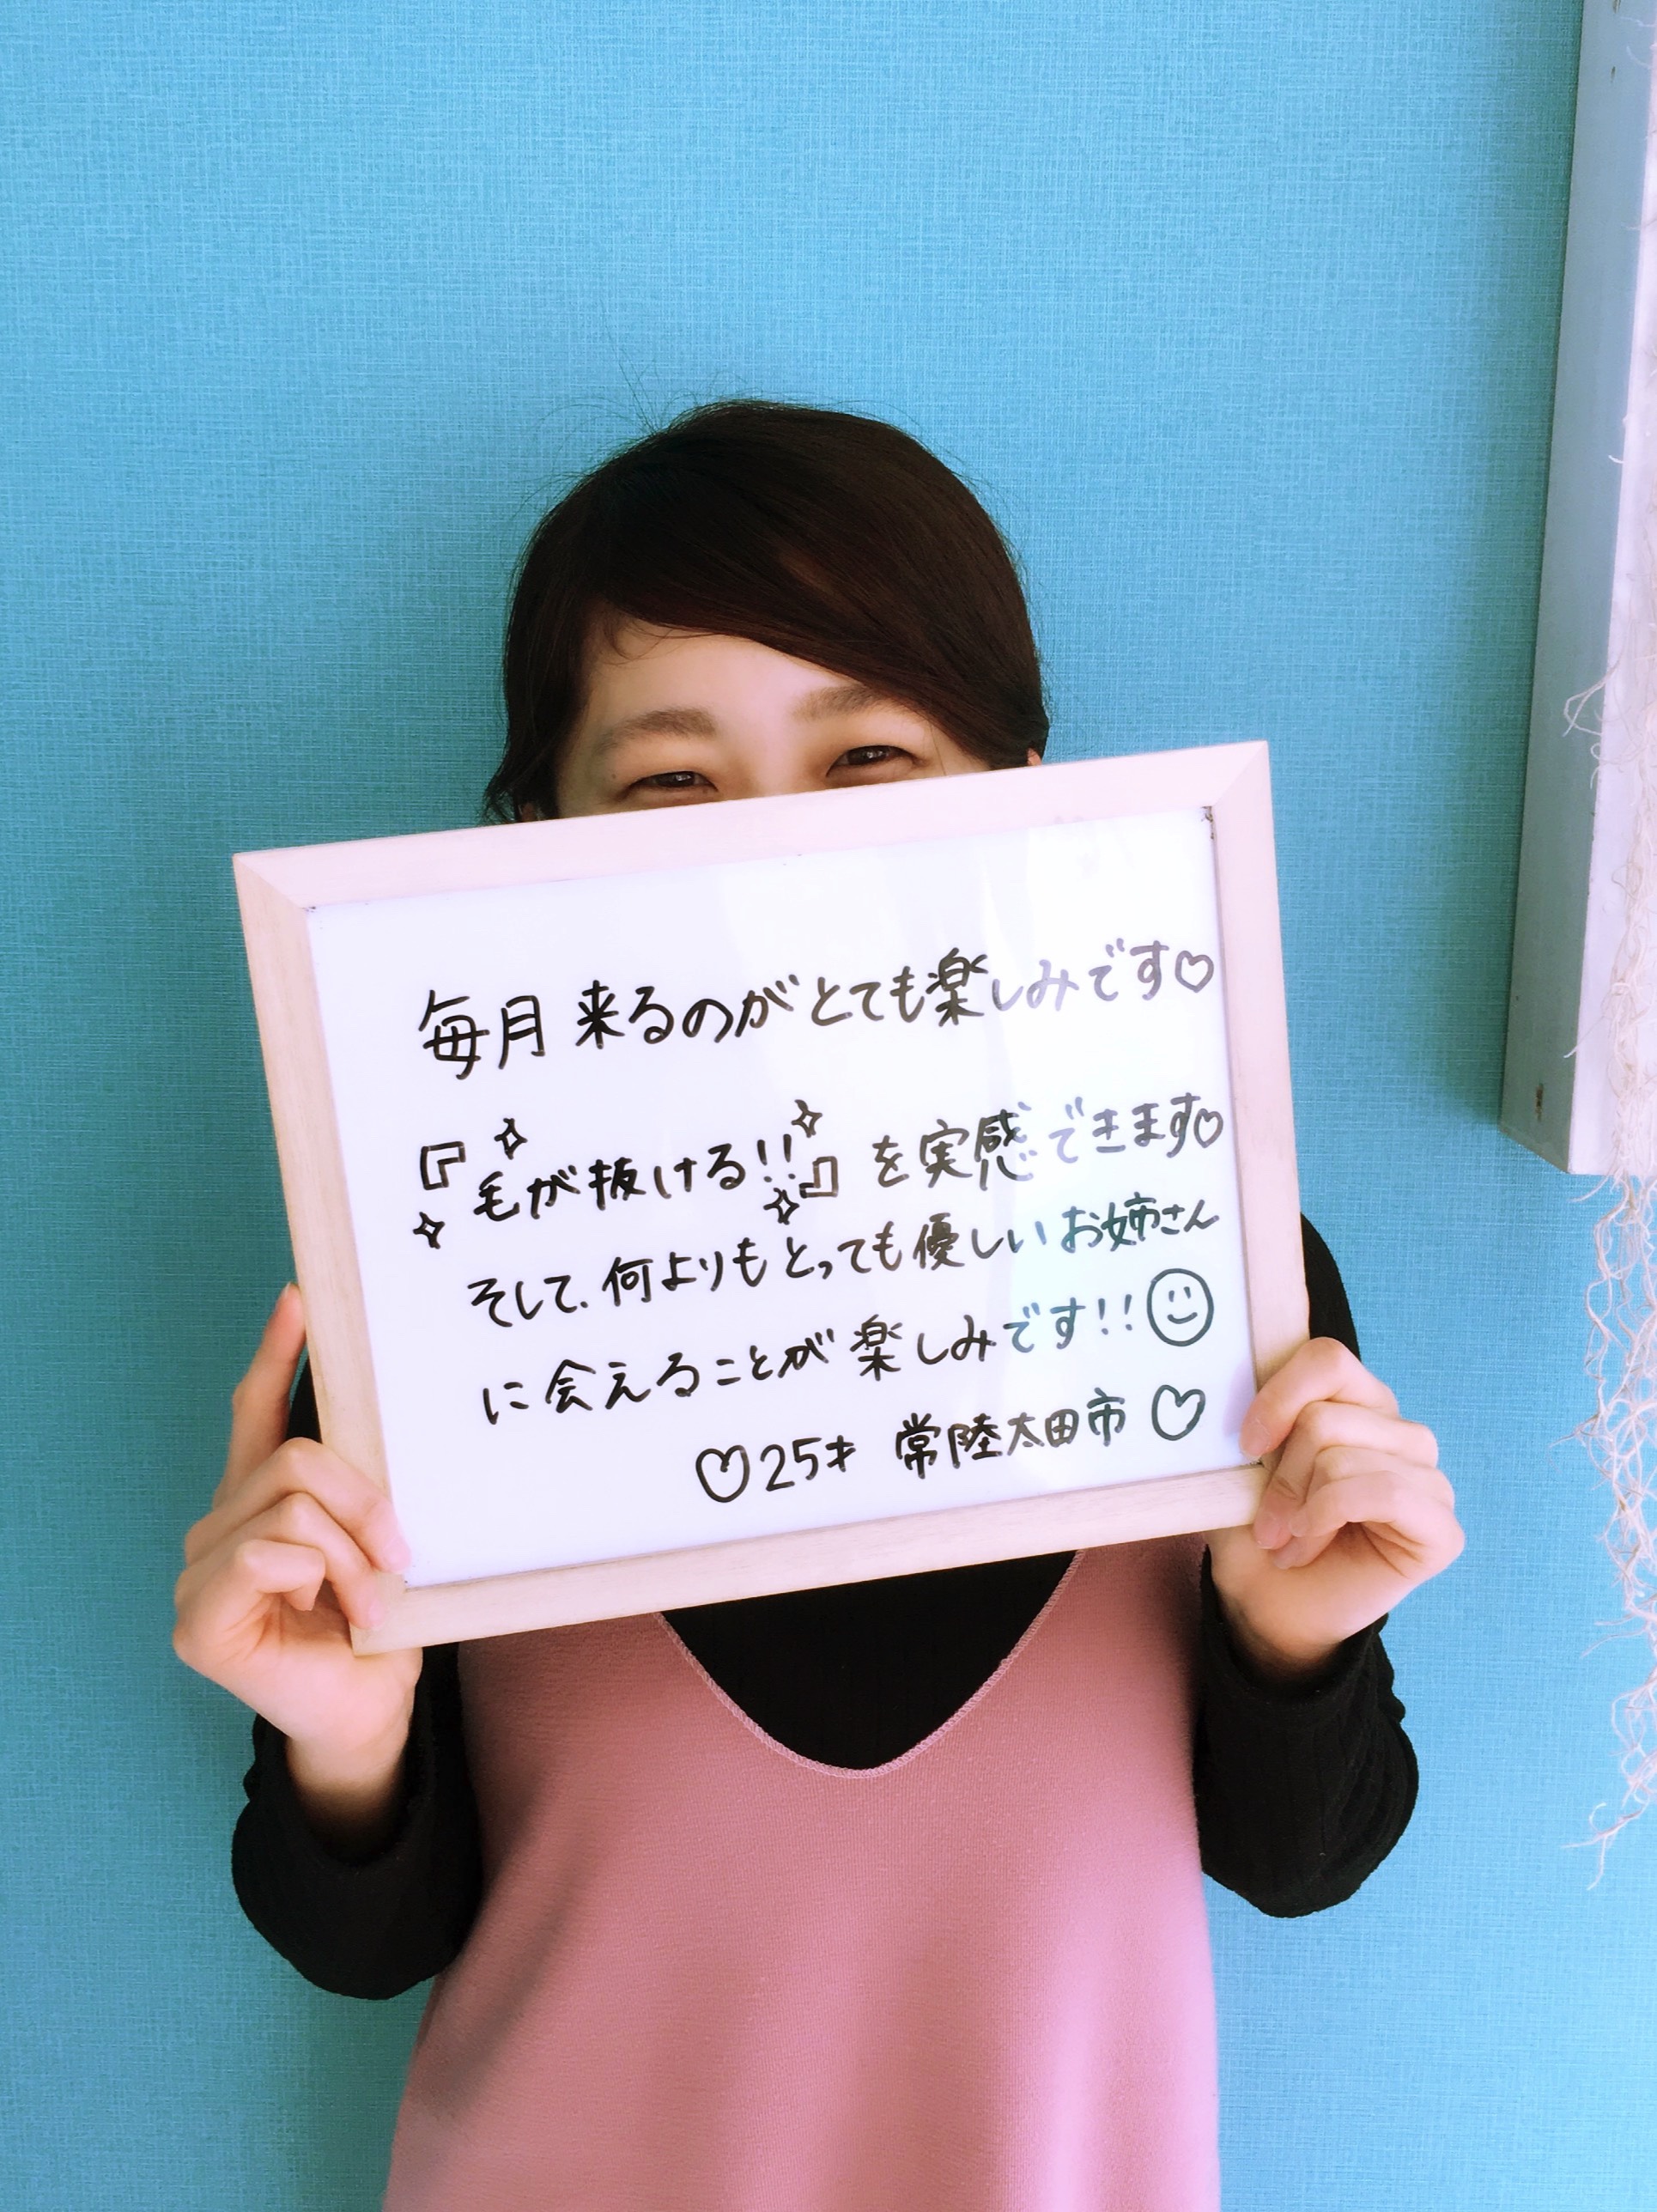 毎月来るのがとても楽しみです♡
『毛が抜ける!!』を実感できます♡
そして、何よりもとっても優しいお姉さん
に会えることが楽しみです!!
♡25才 常陸太田市♡